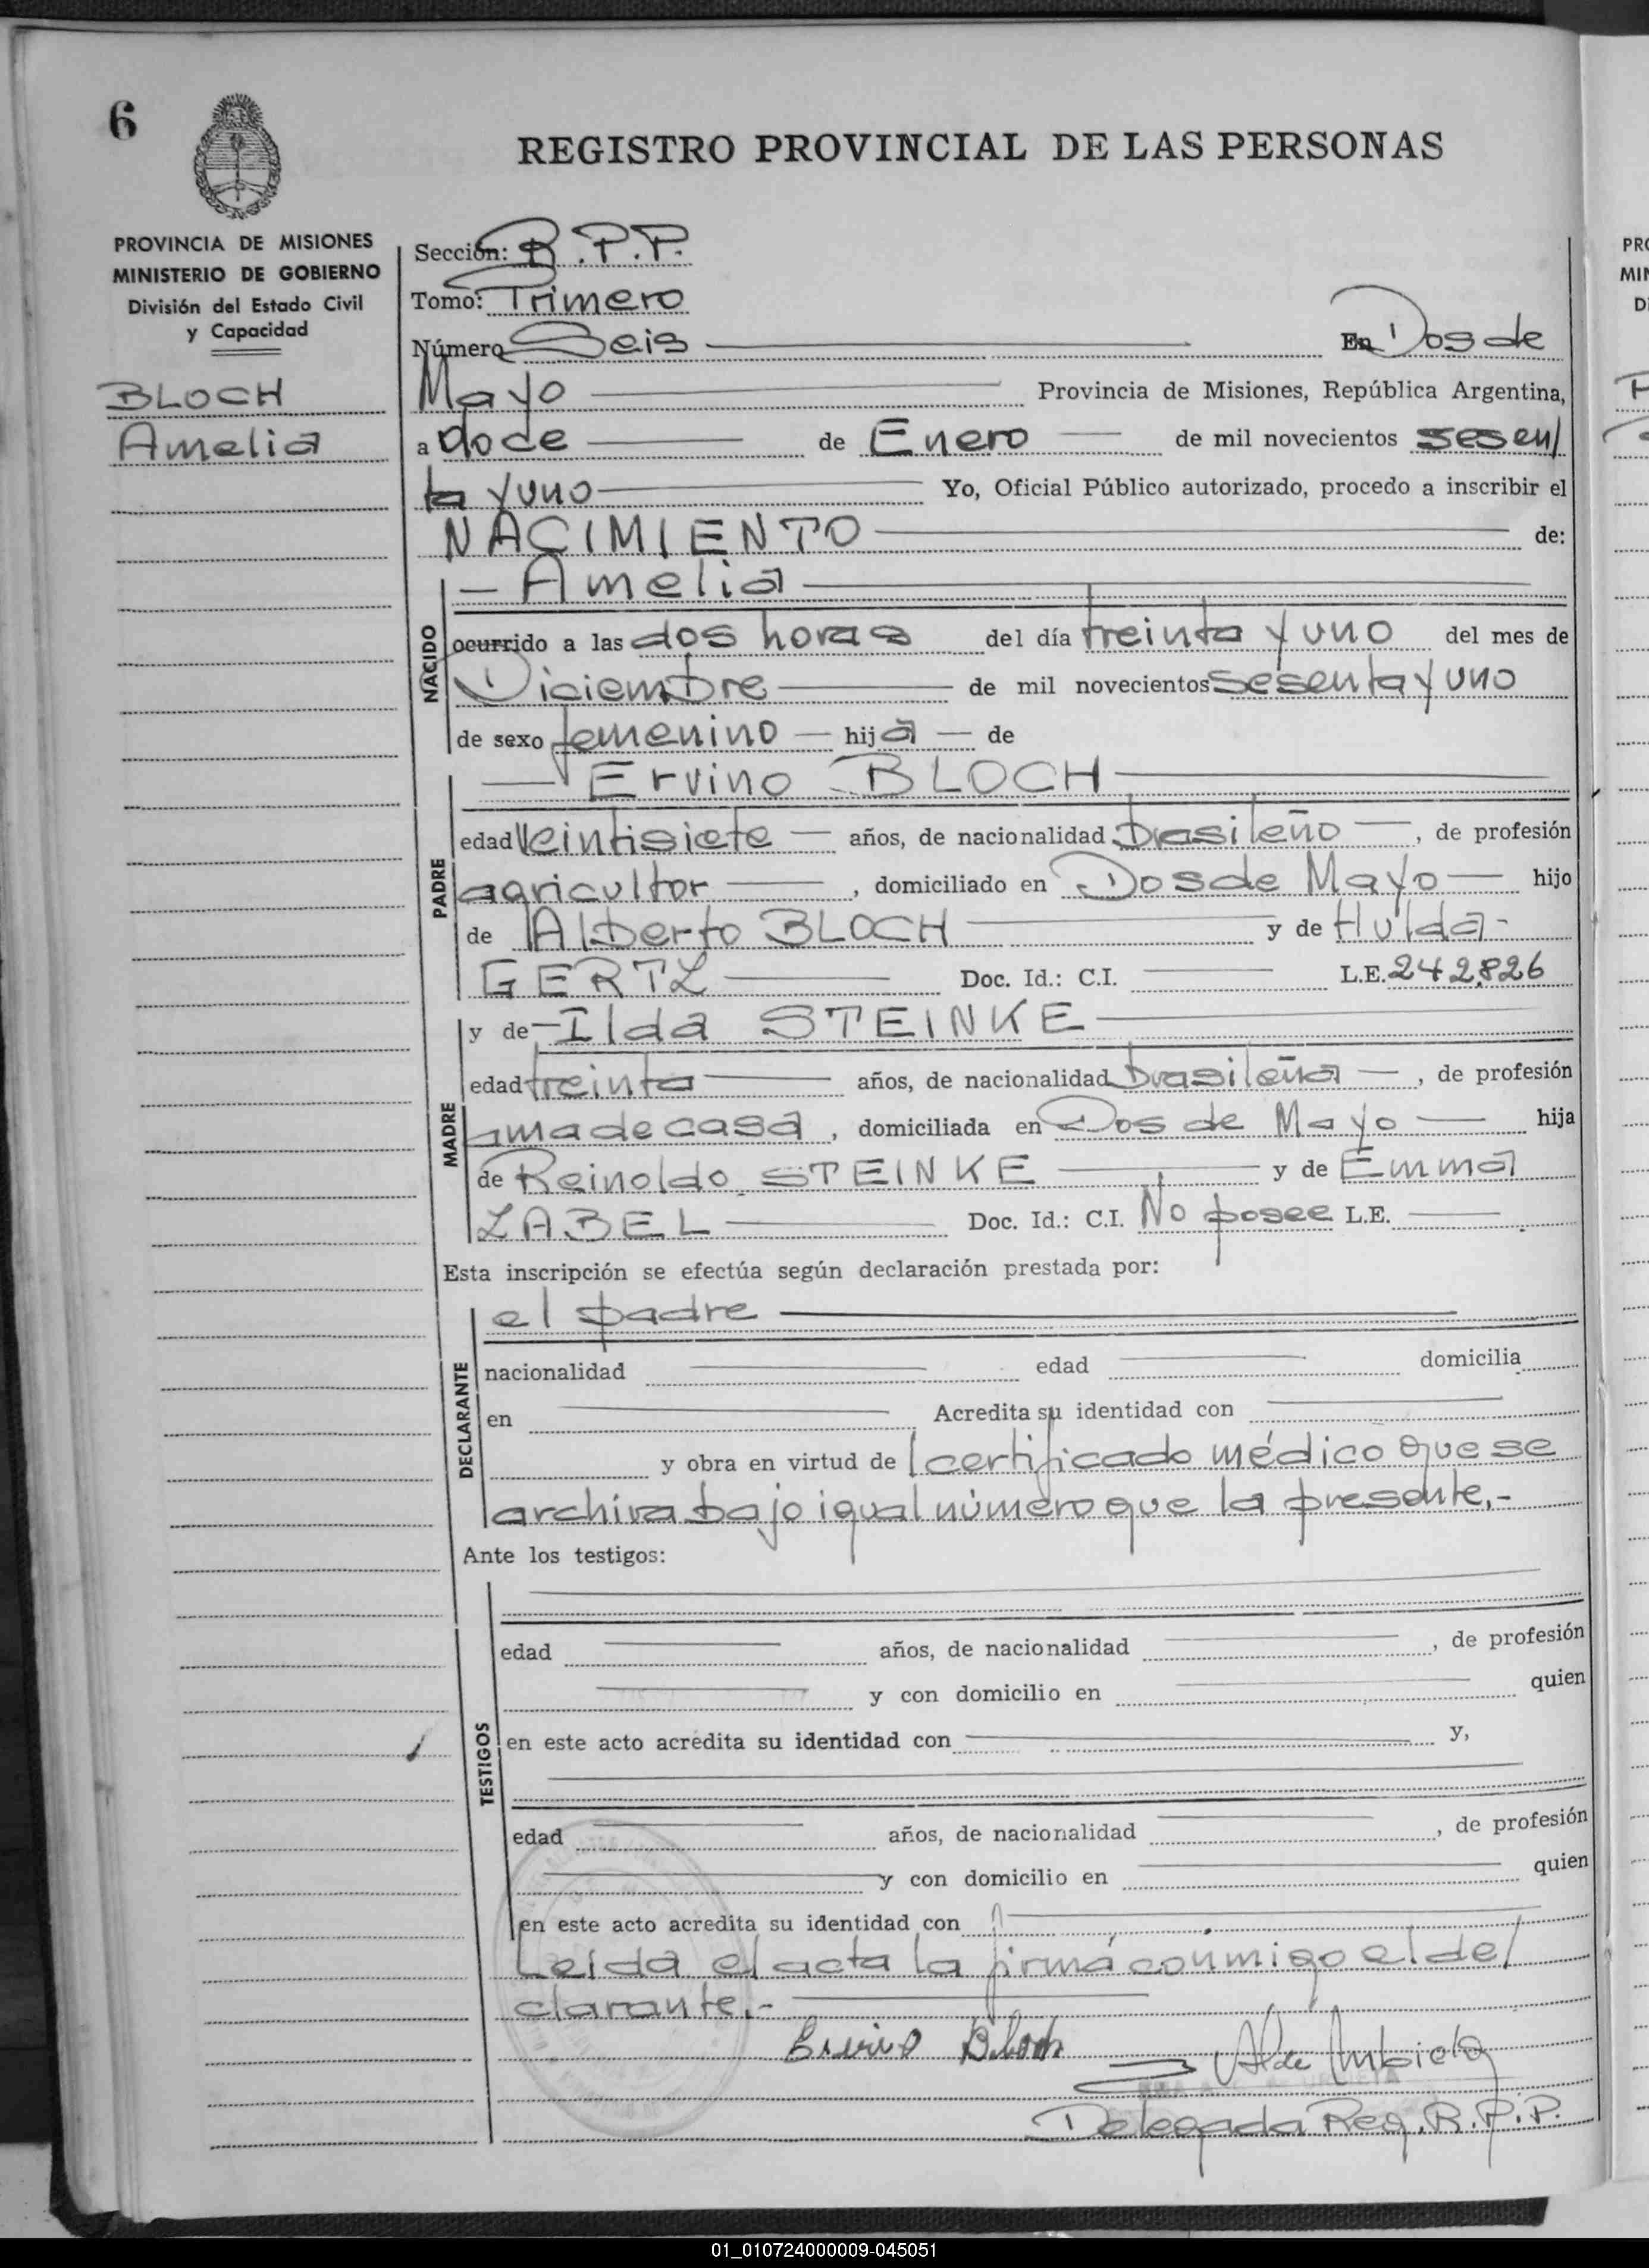 6
REGISTRO PROVINCIAL DE LAS PERSONAS
PROVINCIA DE MISIONES
MINISTERIO DE GOBIERNO
División del Estado Civil
y Capacidad
BLOCH
Amelia
Sección: R.P.P.
Tomo: Primero
Número Seis En Dos de
Mayo Provincia de Misiones, República Argentina,
a doce de Enero de mil novecientos sesen/
ta y uno Yo, Oficial Público autorizado, procedo a inscribir el
NACIMIENTO de:
NACIDO
— Amelia
ocurrido a las dos horas del día treinta y uno del mes de
Diciembre de mil novecientos sesenta y uno
de sexo femenino — hija — de
PADRE
— Ervino BLOCH
edad veintisiete — años, de nacionalidad brasileño —, de profesión
agricultor —, domiciliado en Dos de Mayo — hijo
de Alberto BLOCH y de Hulda-
GERTZ Doc. Id.: C.I. — L.E. 242.826
MADRE
y de — Ilda STEINKE
edad treinta años, de nacionalidad brasileña —, de profesión
ama de casa, domiciliada en Dos de Mayo — hija
de Reinoldo STEINKE y de Emma
ZABEL Doc. Id.: C.I. No posee L.E. —
Esta inscripción se efectúa según declaración prestada por:
DECLARANTE
el padre
nacionalidad edad domicilia
en Acredita su identidad con
y obra en virtud de / certificado médico que se
archiva bajo igual número que la presente.-
Ante los testigos:
TESTIGOS
edad años, de nacionalidad , de profesión
y con domicilio en quien
en este acto acredita su identidad con y,
edad años, de nacionalidad , de profesión
y con domicilio en quien
en este acto acredita su identidad con
Leída el acta la firma conmigo el de/
clarante.-
Ervino Bloch
A de Urbieta
Delegada Reg. R.P.P.
01_010724000009-045051